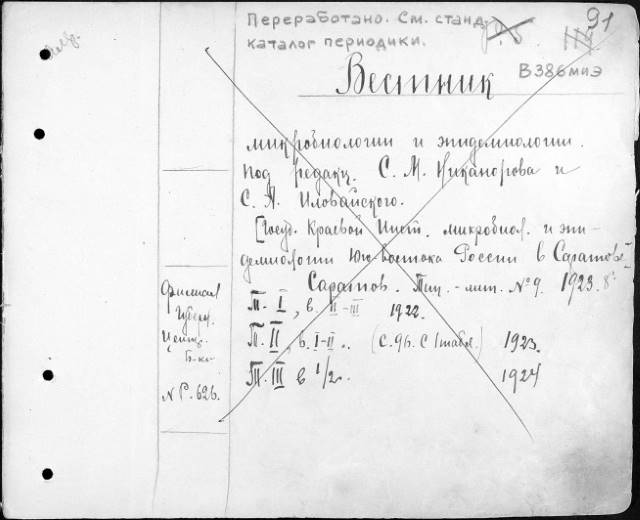 Переработано. См. станд.
каталог периодики.
91
Вестник
В386миэ
микробиологии и эпидемиологии.
под редакц. С. М. Никанорова и
С. А. Иловайского.
[Госуд. Краевой Инст. микробиол. и эпи-
демиологии Юго-Востока России в Саратове]
Саратов. Тип.-лит. №9. 1923. 8°
Т. I, в. II-III 1922.
Т. II, в. I-II. (с. 96. с 1 табл.) 1923.
Т. III в 1/2. 1924
Филиал
Губерн.
Центр.
Б-ки
N P. 626.